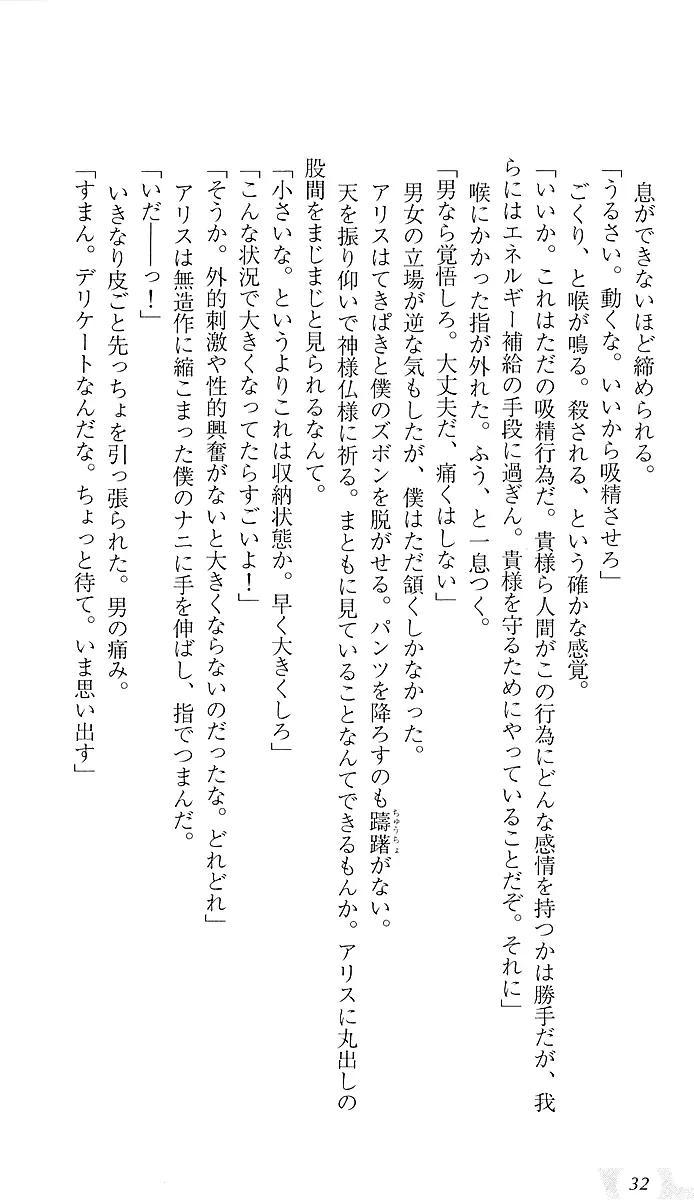 息ができないほど締められる。
「うるさい。動くな。いいから吸精させろ」
ごくり、と喉が鳴る。殺される、という確かな感覚。
「いいか。これはただの吸精行為だ。貴様ら人間がこの行為にどんな感情を持つかは勝手だが、我
らにはエネルギー補給の手段に過ぎん。貴様を守るためにやっていることだぞ。それに」
喉にかかった指が外れた。ふう、と一息つく。
「男なら覚悟しろ。大丈夫だ、痛くはしない」
男女の立場が逆な気もしたが、僕はただ頷くしかなかった。
アリスはてきぱきと僕のズボンを脱がせる。パンツを降ろすのも躊躇がない。
ちゅうちょ
天を振り仰いで神様仏様に祈る。まともに見ていることなんてできるもんか。アリスに丸出しの
股間をまじまじと見られるなんて。
「小さいな。というよりこれは収納状態か。早く大きくしろ」
「こんな状況で大きくなってたらすごいよ！」
「そうか。外的刺激や性的興奮がないと大きくならないのだったな。どれどれ」
アリスは無造作に縮こまった僕のナニに手を伸ばし、指でつまんだ。
「いだ――っ！」
いきなり皮ごと先っちょを引っ張られた。男の痛み。
「すまん。デリケートなんだな。ちょっと待て。いま思い出す」
32